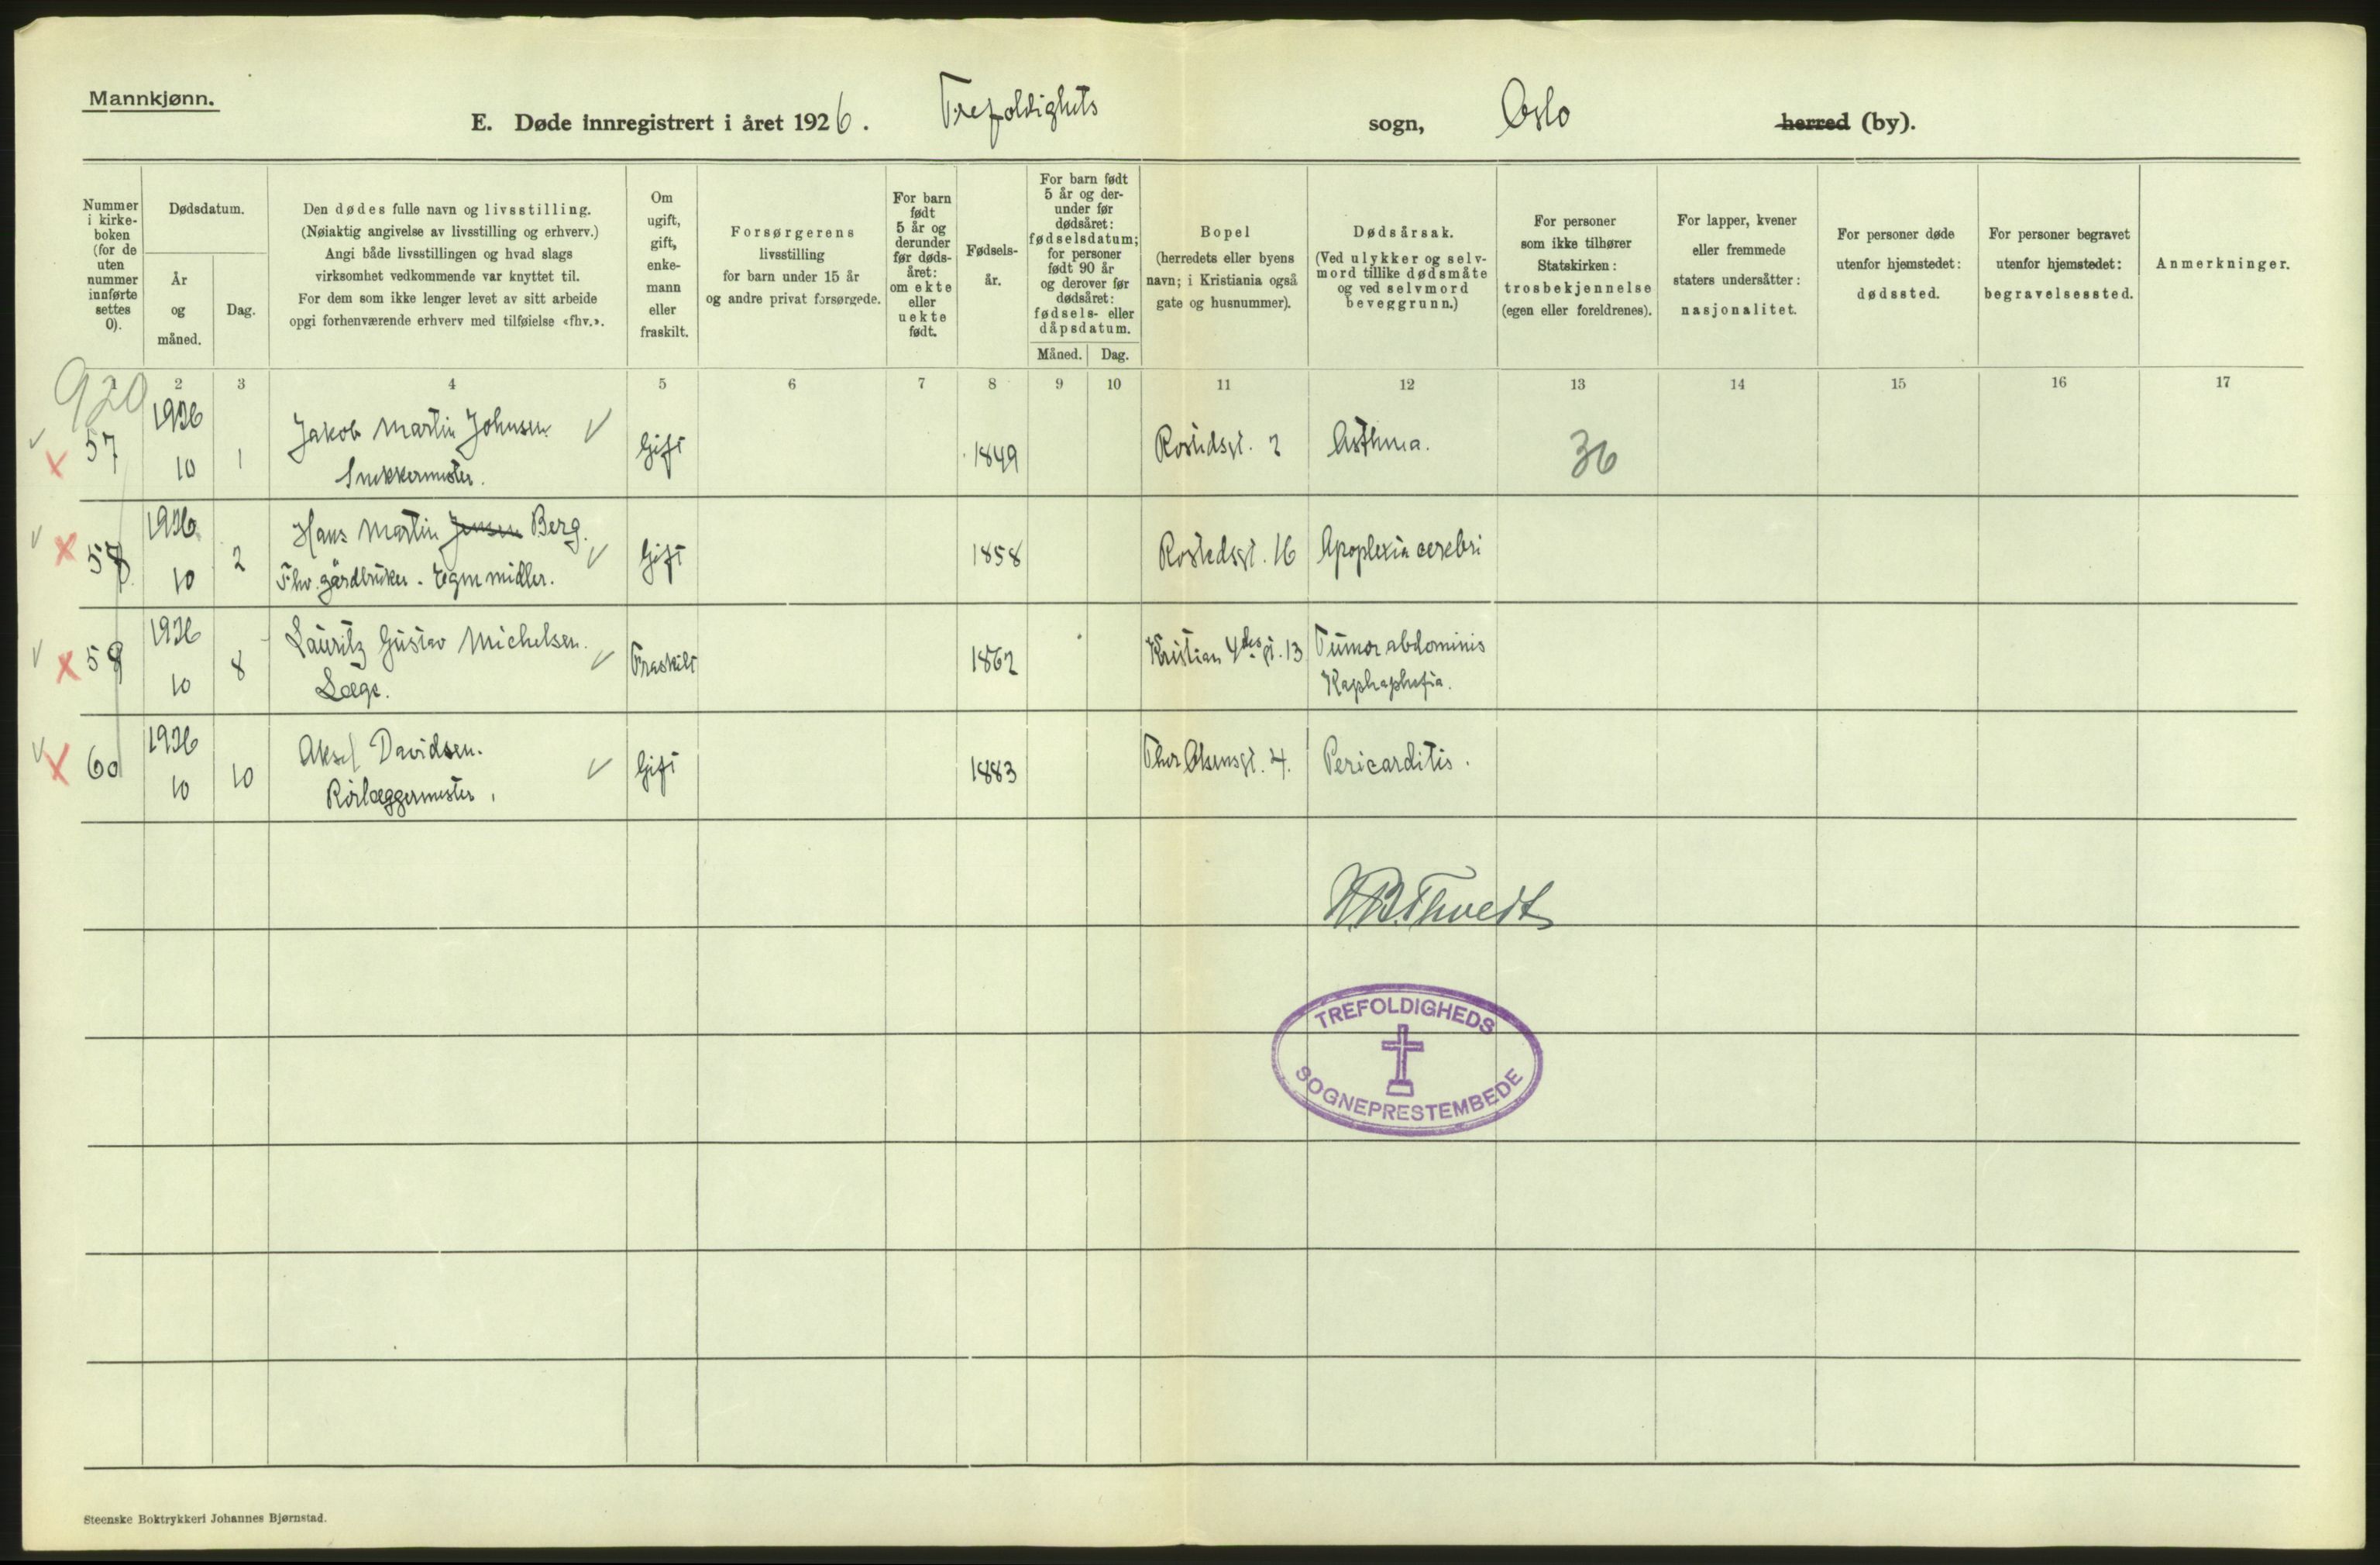 Mannkjønn.
E. Døde innregistrert i året 1926. Trefoldighets sogn, Oslo herred (by).
Nummer i kirke-boken (for de uten nummer innførte settes 0).
Dødsdatum.
År og måned.
Dag.
Den dødes fulle navn og livsstilling.
(Nøiaktig angivelse av livsstilling og erhverv.)
Angi både livsstillingen og hvad slags
virksomhet vedkommende var knyttet til.
For dem som ikke lenger levet av sitt arbeide
opgi forhenværende erhverv med tilføielse «fhv.».
Om ugift, gift, enke-mann eller fraskilt.
Forsørgerens
livsstilling
for barn under 15 år
og andre privat forsørgede.
For barn født 5 år og derunder før døds-året: om ekte eller uekte født.
Fødsels-år.
For barn født 5 år og der-under før dødsåret: fødselsdatum; for personer født 90 år og derover før dødsåret: fødsels- eller dåpsdatum.
Måned. Dag.
Bopel
(herredets eller byens
navn; i Kristiania også
gate og husnummer).
Dødsårsak.
(Ved ulykker og selv-
mord tillike dødsmåte
og ved selvmord
beveggrunn.)
For personer
som ikke tilhører
Statskirken:
trosbekjennelse
(egen eller foreldrenes).
For lapper, kvener
eller fremmede
staters undersåtter:
nasjonalitet.
For personer døde
utenfor hjemstedet:
dødssted.
For personer begravet
utenfor hjemstedet:
begravelsessted.
Anmerkninger.
1 2 3 4 5 6 7 8 9 10 11 12 13 14 15 16 17
920
57 1926 10 1 Jakob Martin Johnsen Snekkermester. Gift 1849 Rostedsgt. 2 Asthma. 36
58 1926 10 2 Hans Martin Jensen Berg. Fhv. gårdbruker. Egne midler. Gift 1858 Rostedsgt. 16 Apoplexia cerebri
59 1926 10 8 Lauritz Gustav Michelsen. Læge. Fraskilt 1862 Kristian 4des gt. 13 Tumor abdominis
60 1926 10 10 Aksel Davidsen. Rørlæggermester. Gift 1883 Thor Olsensgt. 4. Pericarditis.
TREFOLDIGHEDS
SOGNEPRESTEMBEDE
Steenske Boktrykkeri Johannes Bjørnstad.